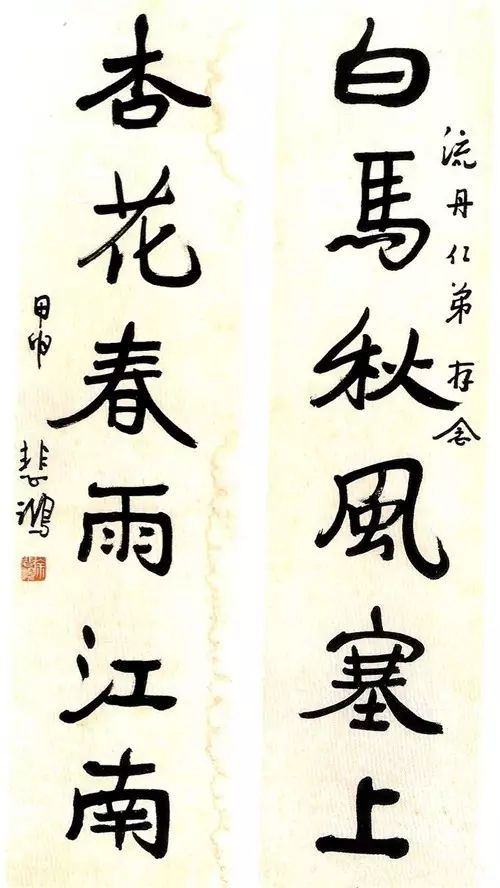 白馬秋風塞上
流丹仁弟存念
杏花春雨江南
甲申
悲鴻